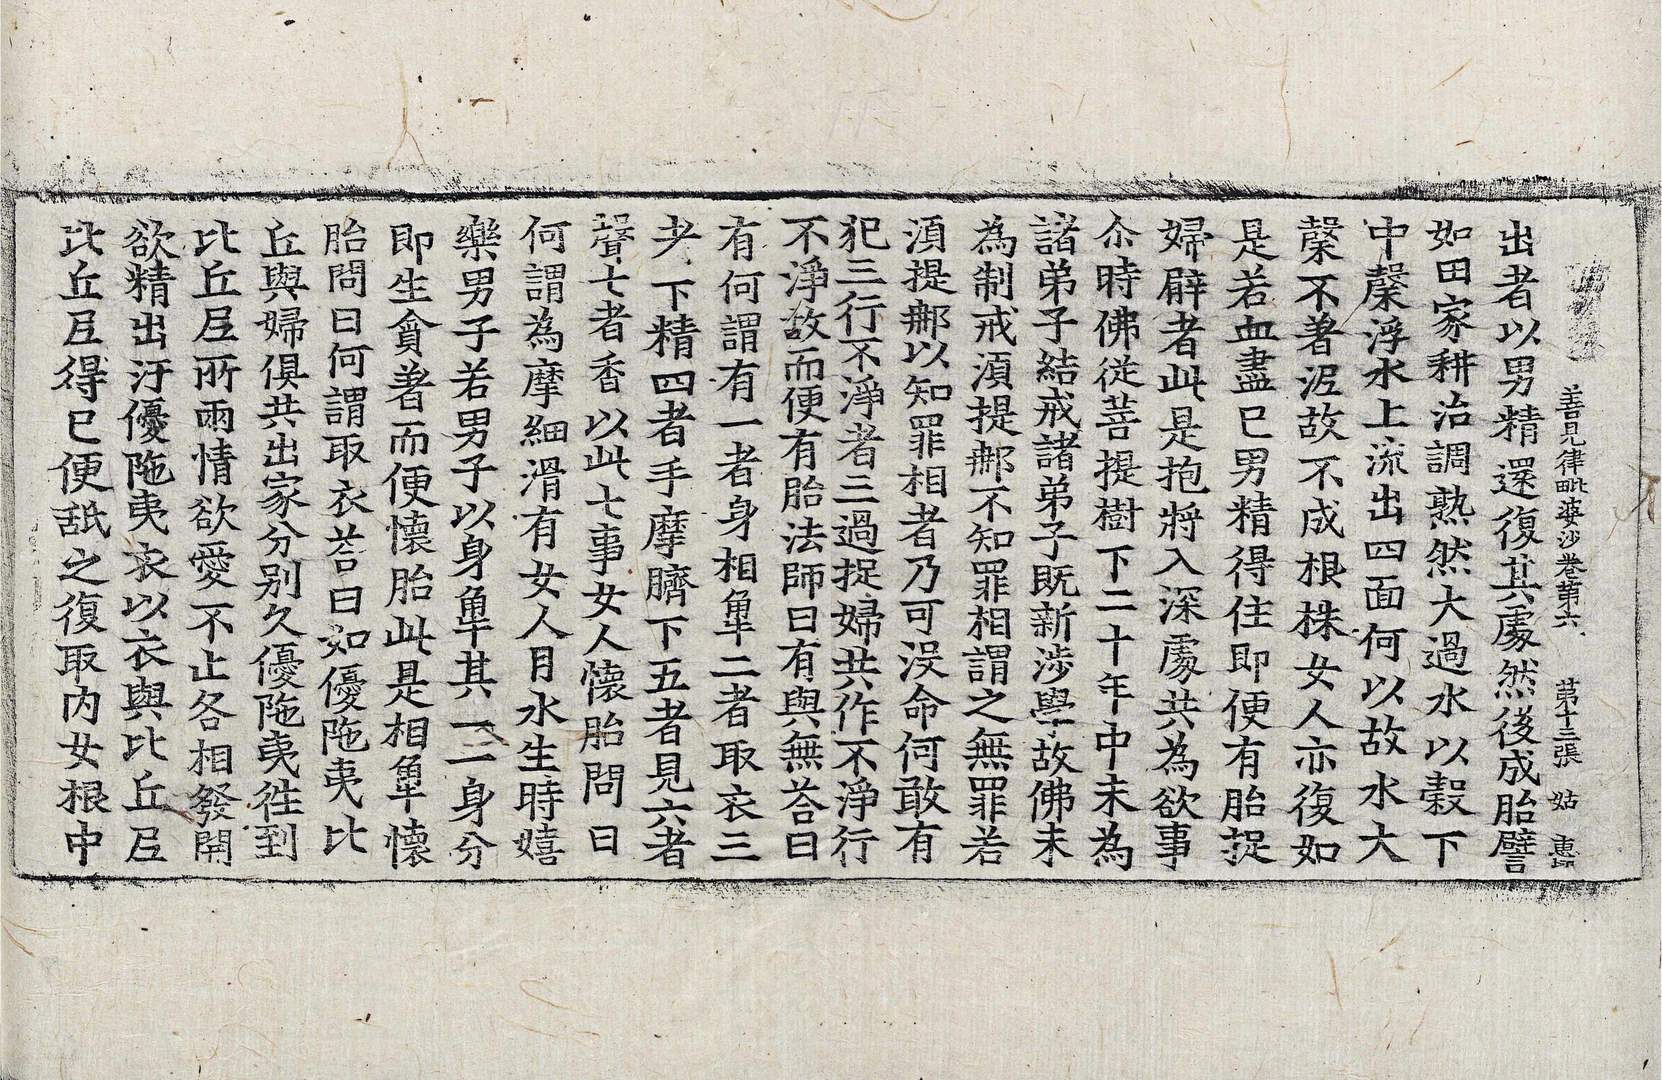 善見律毗婆沙卷第六 第十三張 姑 惠頭
出者以男精還復其處然後成胎譬
如田家耕治調熟然大過水以穀下
中糵浮水上流出四面何以故水大
糵不著泥故不成根株女人亦復如
是若血盡已男精得住即便有胎捉
婦臂者此是抱將入深處共為欲事
尒時佛從菩提樹下二十年中未為
諸弟子結戒諸弟子旣新涉學故佛未
為制戒湏提𨙻不知罪相謂之無罪若
湏提𨙻以知罪相者乃可沒命何敢有
犯三行不淨者三過捉婦共作不淨行
不淨故而便有胎法師曰有與無荅曰
有何謂有一者身相觸二者取衣三
者下精四者手摩臍下五者見六者
聲七者香以此七事女人懷胎問曰
何謂為摩細滑有女人月水生時嬉
樂男子若男子以身觸其一一身分
即生貪著而便懷胎此是相觸懷
胎問曰何謂取衣荅曰如優陁夷比
丘與婦俱共出家分別久優陁夷徃到
比丘尼所兩情欲愛不止各相發開
欲精出汙優陁夷衣以衣與比丘尼
比丘尼得已便舐之復取內女根中